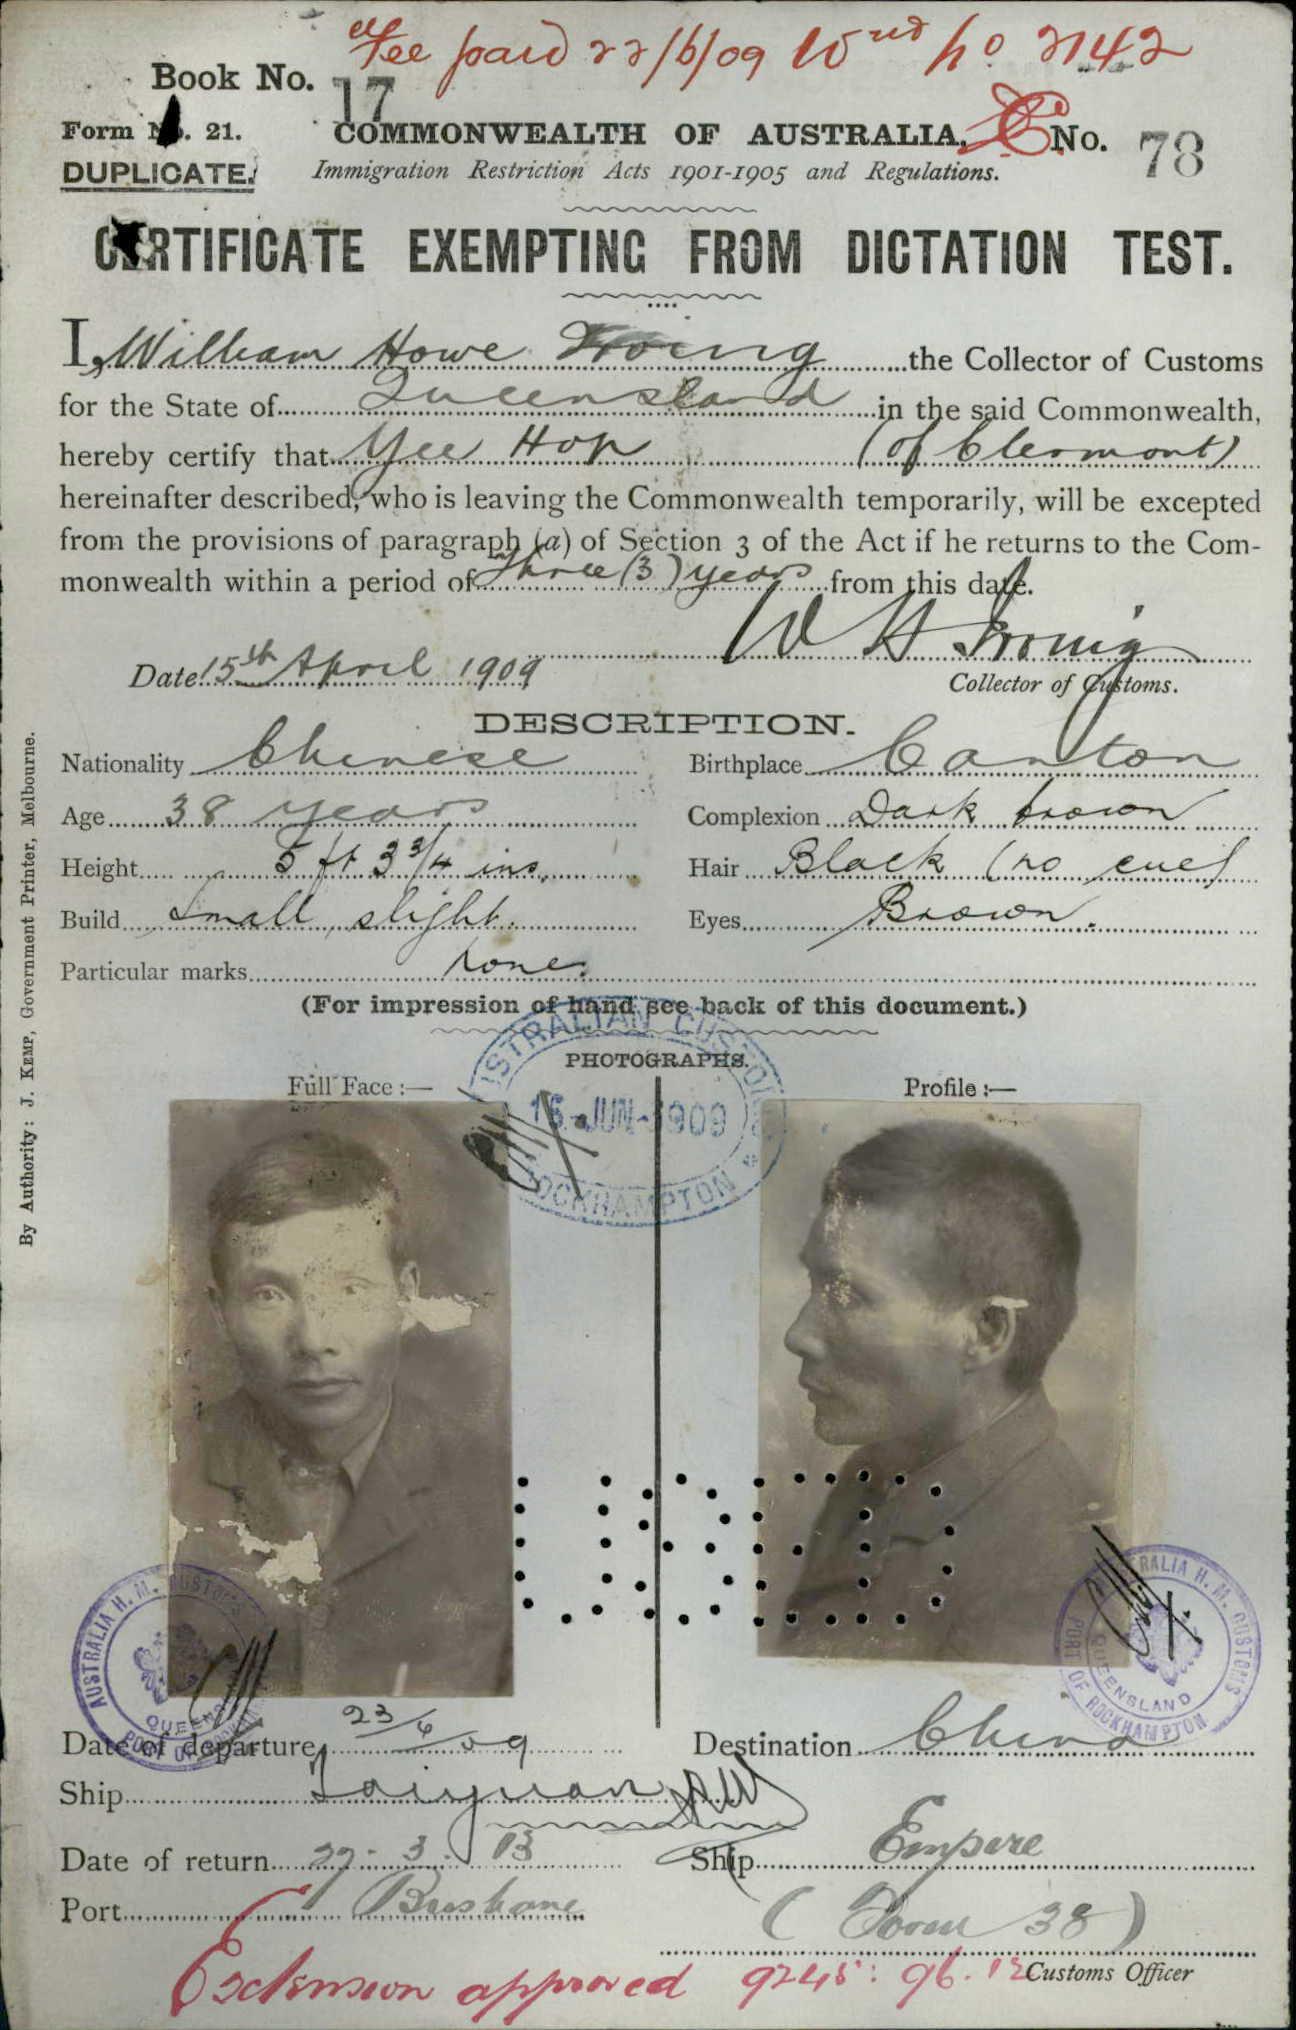 Fee paid 22/6/09 No 2142
Book No. 17
Form No. 21.
COMMONWEALTH OF AUSTRALIA,
No. 78
DUPLICATE.
Immigration Restriction Acts 1901-1905 and Regulations.
CERTIFICATE EXEMPTING FROM DICTATION TEST.
I, William Howe Irving the Collector of Customs
for the State of Queensland in the said Commonwealth,
hereby certify that Yee Hop (of Clermont)
hereinafter described, who is leaving the Commonwealth temporarily, will be excepted
from the provisions of paragraph (a) of Section 3 of the Act if he returns to the Com-
monwealth within a period of three (3) years from this date.
W H Irving
Date 15th April 1909
Collector of Customs.
DESCRIPTION.
Nationality Chinese Birthplace Canton
Age 38 years Complexion Dark brown
Height 5 ft 3 3/4 ins. Hair Black (no cue)
Build Small, slight. Eyes Brown.
Particular marks none.
(For impression of hand see back of this document.)
PHOTOGRAPHS.
Full Face :— Profile :—
AUSTRALIAN CUSTOMS
JUN 1909
ROCKHAMPTON
AUSTRALIA H. M. CUSTOMS
QUEENSLAND
PORT OF ROCKHAMPTON
AUSTRALIA H. M. CUSTOMS
QUEENSLAND
PORT OF ROCKHAMPTON
Date of departure 23/6/09 Destination China
Ship Taiyuan
Date of return 27. 3. 13 Ship Empire
Port Brisbane (Form 38)
Customs Officer
Extension approved
By Authority: J. KEMP, Government Printer, Melbourne.